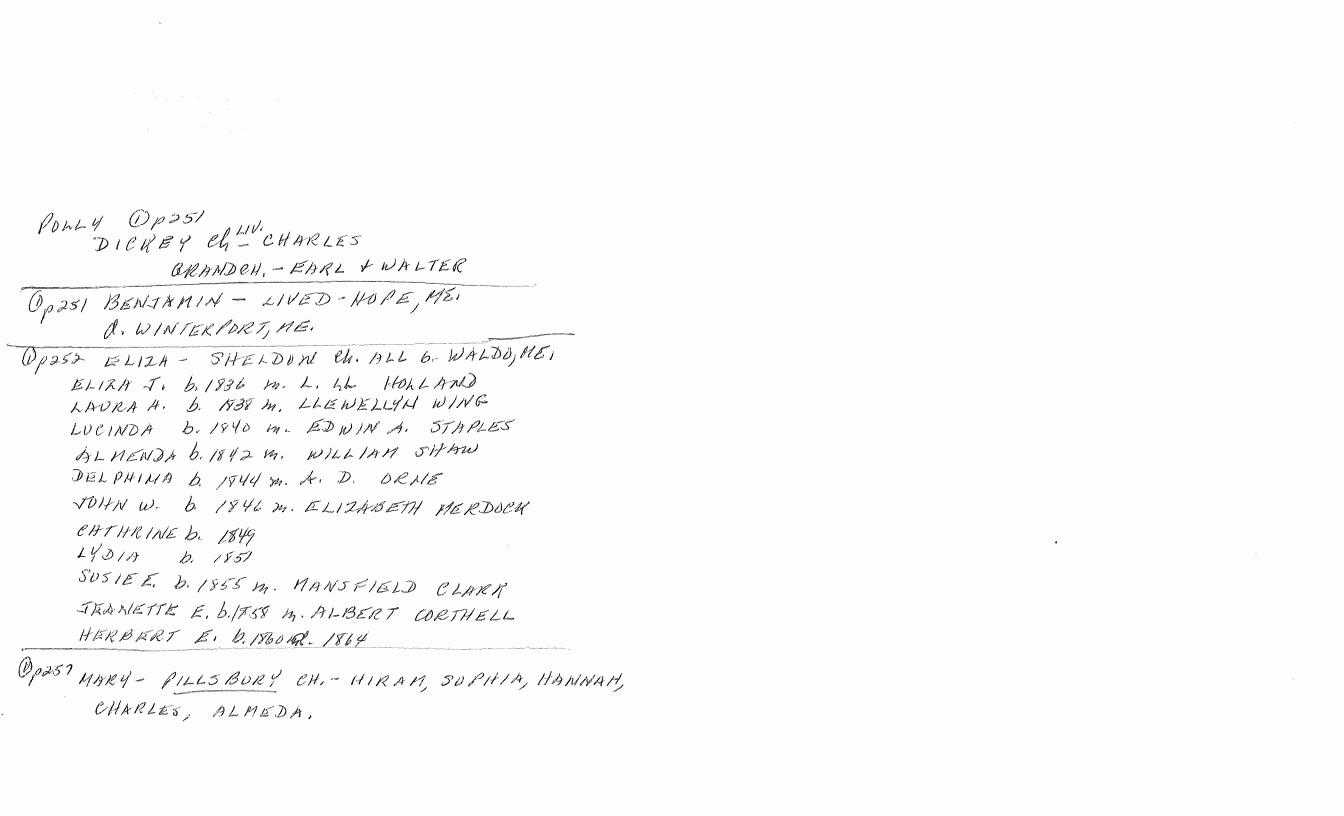 POLLY ① p251
DICKEY Ch LIV. – CHARLES
GRANDCH. – EARL + WALTER
① p251 BENJAMIN – LIVED – HOPE, ME.
d. WINTERPORT, ME.
① p252 ELIZA – SHELDON Ch. ALL b. WALDO, ME.
ELIZA J. b. 1836 m. L. L. HOLLAND
LAURA A. b. 1838 m. LLEWELLYN WING
LUCINDA b. 1840 m. EDWIN A. STAPLES
ALMENDA b. 1842 m. WILLIAM SHAW
DELPHINA b. 1844 m. A. D. ORNE
JOHN W. b 1846 m. ELIZABETH MERDOCK
CATHRINE b. 1849
LYDIA b. 1851
SUSIE E. b. 1855 m. MANSFIELD CLARK
JEANETTE E. b. 1858 m. ALBERT CORTHELL
HERBERT E. b. 1860 d. 1864
① p257 MARY – PILLSBURY CH. – HIRAM, SOPHIA, HANNAH,
CHARLES, ALMEDA.